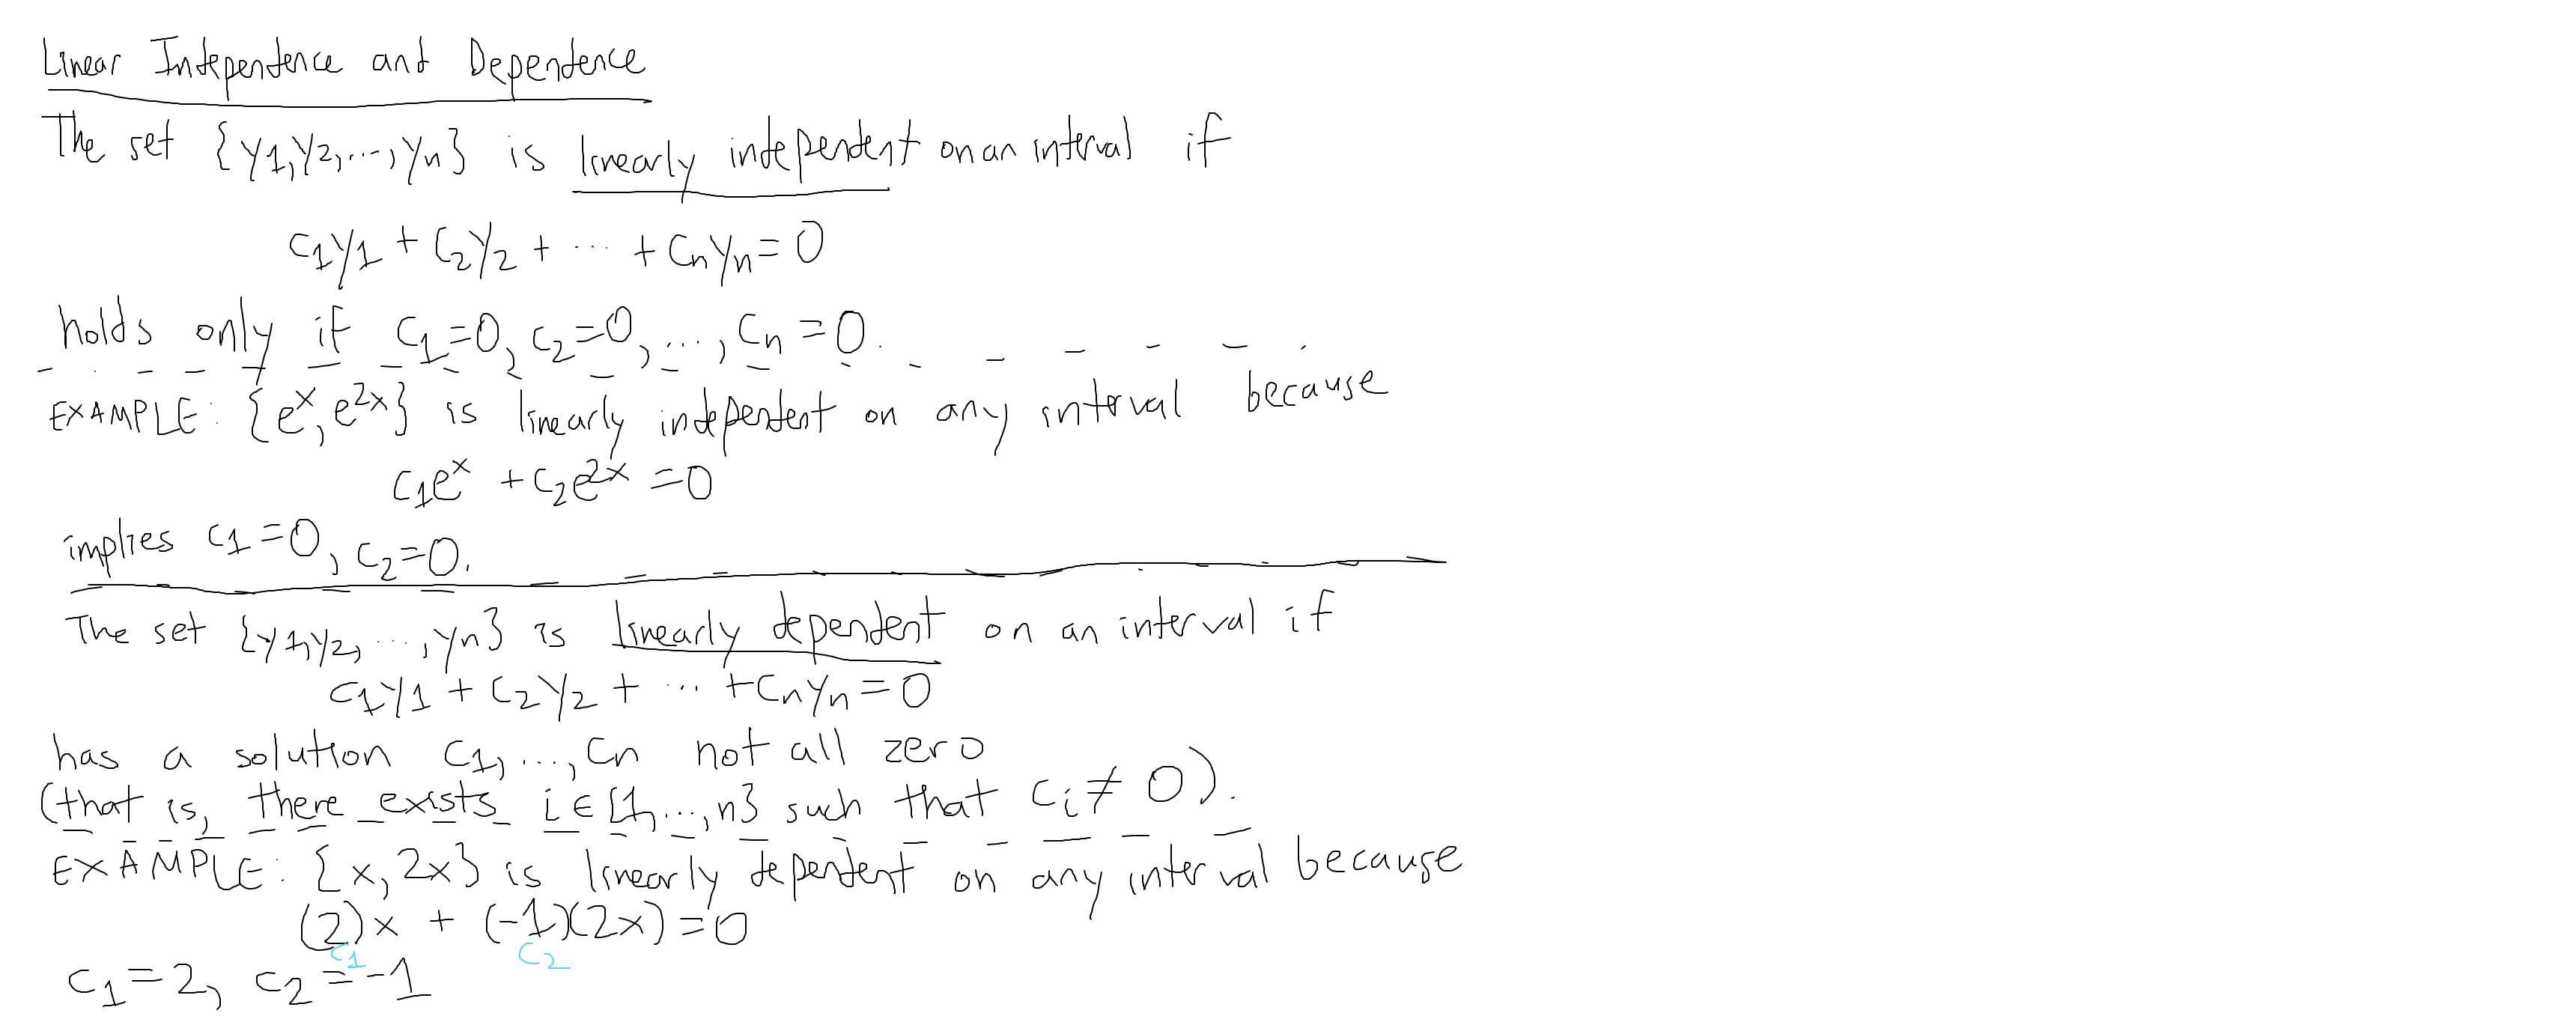 Linear Independence and Dependence
The set {y1, y2, ..., yn} is linearly independent on an interval if
c1y1 + c2y2 + ... + cnyn = 0
holds only if c1 = 0, c2 = 0, ..., cn = 0.
EXAMPLE: {e^x, e^2x} is linearly independent on any interval because
c1e^x + c2e^2x = 0
implies c1 = 0, c2 = 0.
The set {y1, y2, ..., yn} is linearly dependent on an interval if
c1y1 + c2y2 + ... + cnyn = 0
has a solution c1, ..., cn not all zero
(that is, there exists i ∈ {1, ..., n} such that ci ≠ 0).
EXAMPLE: {x, 2x} is linearly dependent on any interval because
(2)x + (-1)(2x) = 0
c1 c2
c1 = 2, c2 = -1